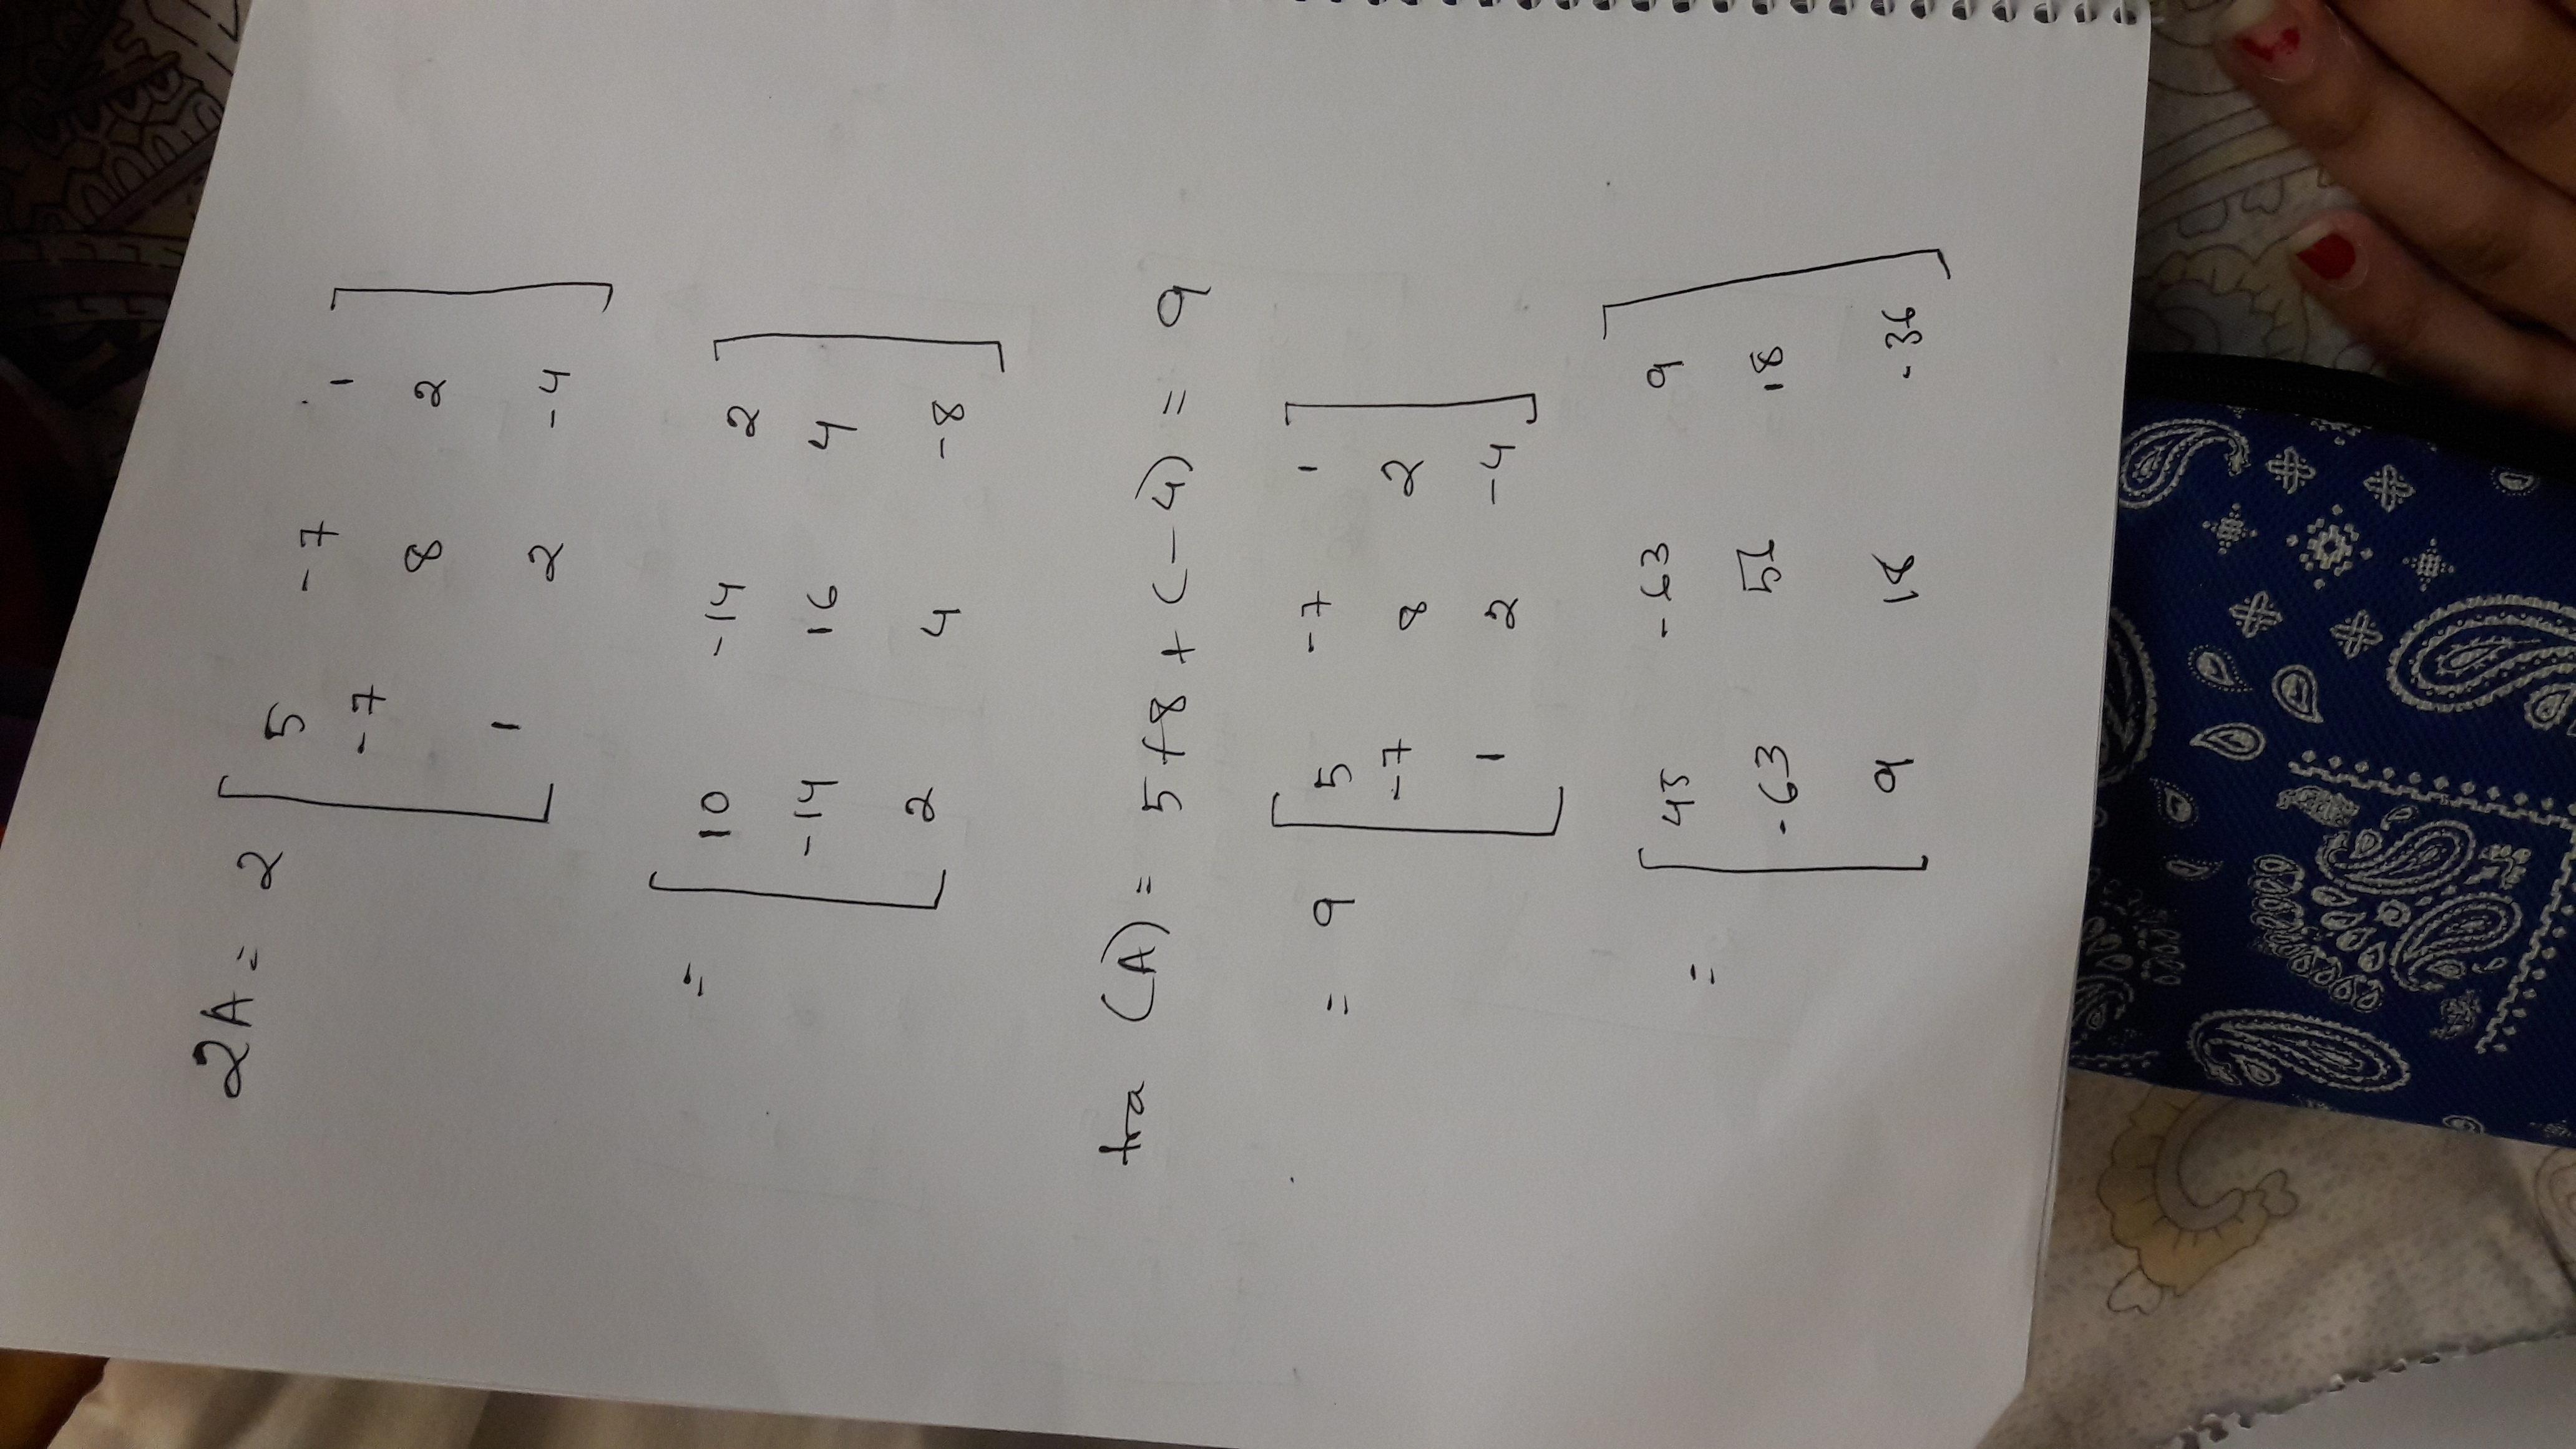 2A = 2 [ 5 -7 1
-7 8 2
1 2 -4 ]
= [ 10 -14 2
-14 16 4
2 4 -8 ]
tra (A) = 5+8+(-4) = 9
= 9 [ 5 -7 1
-7 8 2
1 2 -4 ]
= [ 45 -63 9
-63 18
9 18 -36 ]